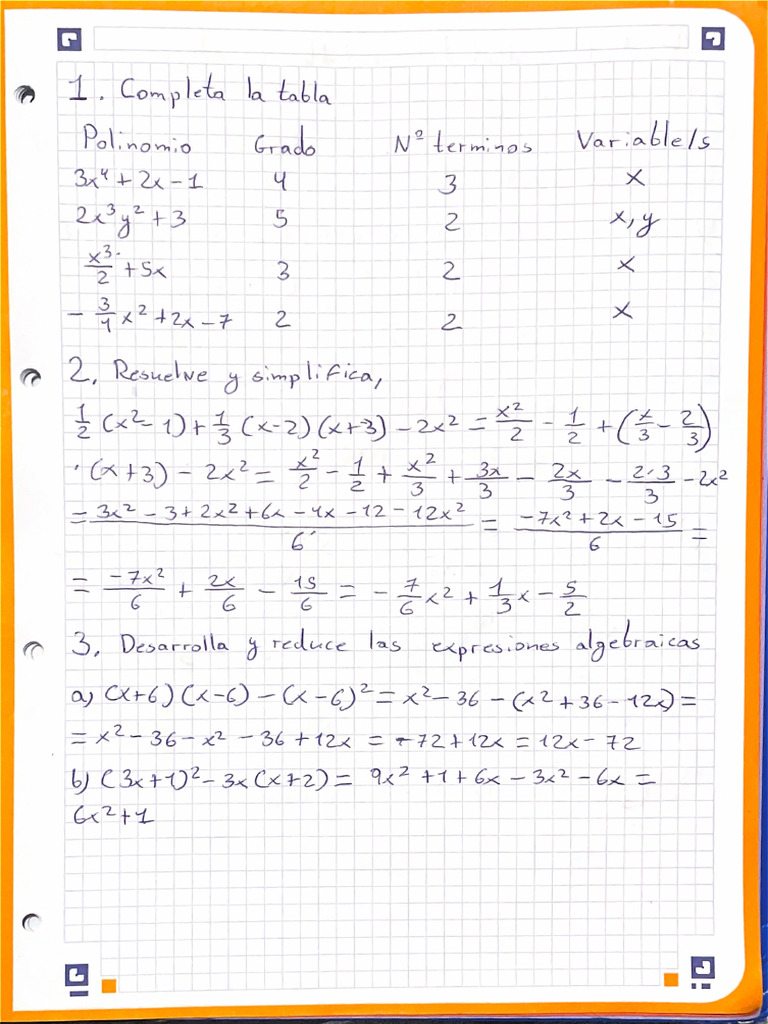 1. Completa la tabla
Polinomio Grado Nº terminos Variable/s
3x⁴ + 2x - 1 4 3 x
2x³y² + 3 5 2 x, y
x³/2 + 5x 3 2 x
- 3/4 x² + 2x - 7 2 2 x
2. Resuelve y simplifica,
1/2 (x² - 1) + 1/3 (x - 2) (x + 3) - 2x² = x²/2 - 1/2 + (x/3 - 2/3)
· (x + 3) - 2x² = x²/2 - 1/2 + x²/3 + 3x/3 - 2x/3 - 2·3/3 - 2x²
= (3x² - 3 + 2x² + 6x - 4x - 12 - 12x²)/6 = (-7x² + 2x - 15)/6 =
= -7x²/6 + 2x/6 - 15/6 = - 7/6 x² + 1/3 x - 5/2
3. Desarrolla y reduce las expresiones algebraicas
a) (x + 6) (x - 6) - (x - 6)² = x² - 36 - (x² + 36 - 12x) =
= x² - 36 - x² - 36 + 12x = -72 + 12x = 12x - 72
b) (3x + 1)² - 3x (x + 2) = 9x² + 1 + 6x - 3x² - 6x =
6x² + 1